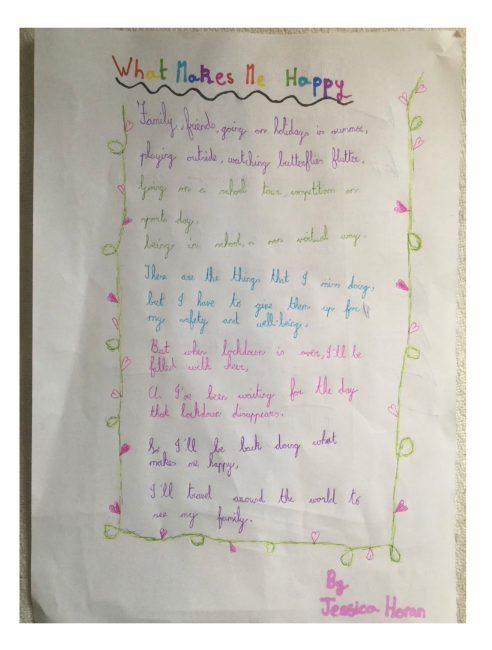 What Makes Me Happy
Family, friends, going on holidays in summer,
playing outside, watching butterflies flutter.
Going on a school tour, competitions on
sports day.
being in school, in non virtual way.
These are the things that I miss doing,
but I have to give them up for
my safety and well-being.
But when lockdown is over, I'll be
filled with cheer,
As I've been waiting for the day
that lockdown disappears.
So I'll be back doing what
makes me happy,
I'll travel around the world to
see my family.
By
Jessica